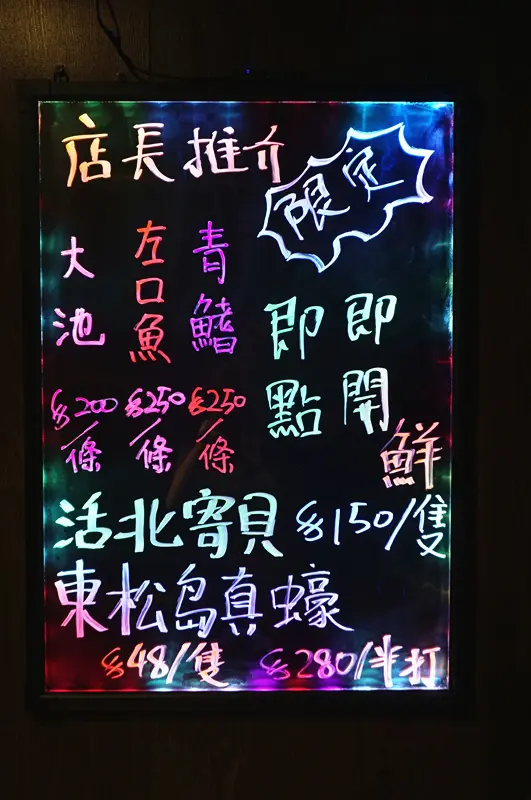 店長推介
限定
青鱔
$250
/條
左口魚
$250
/條
大池
$200
/條
即開
即點
鮮
活北寄貝 $150/隻
東松島真蠔
$48/隻 $280/半打